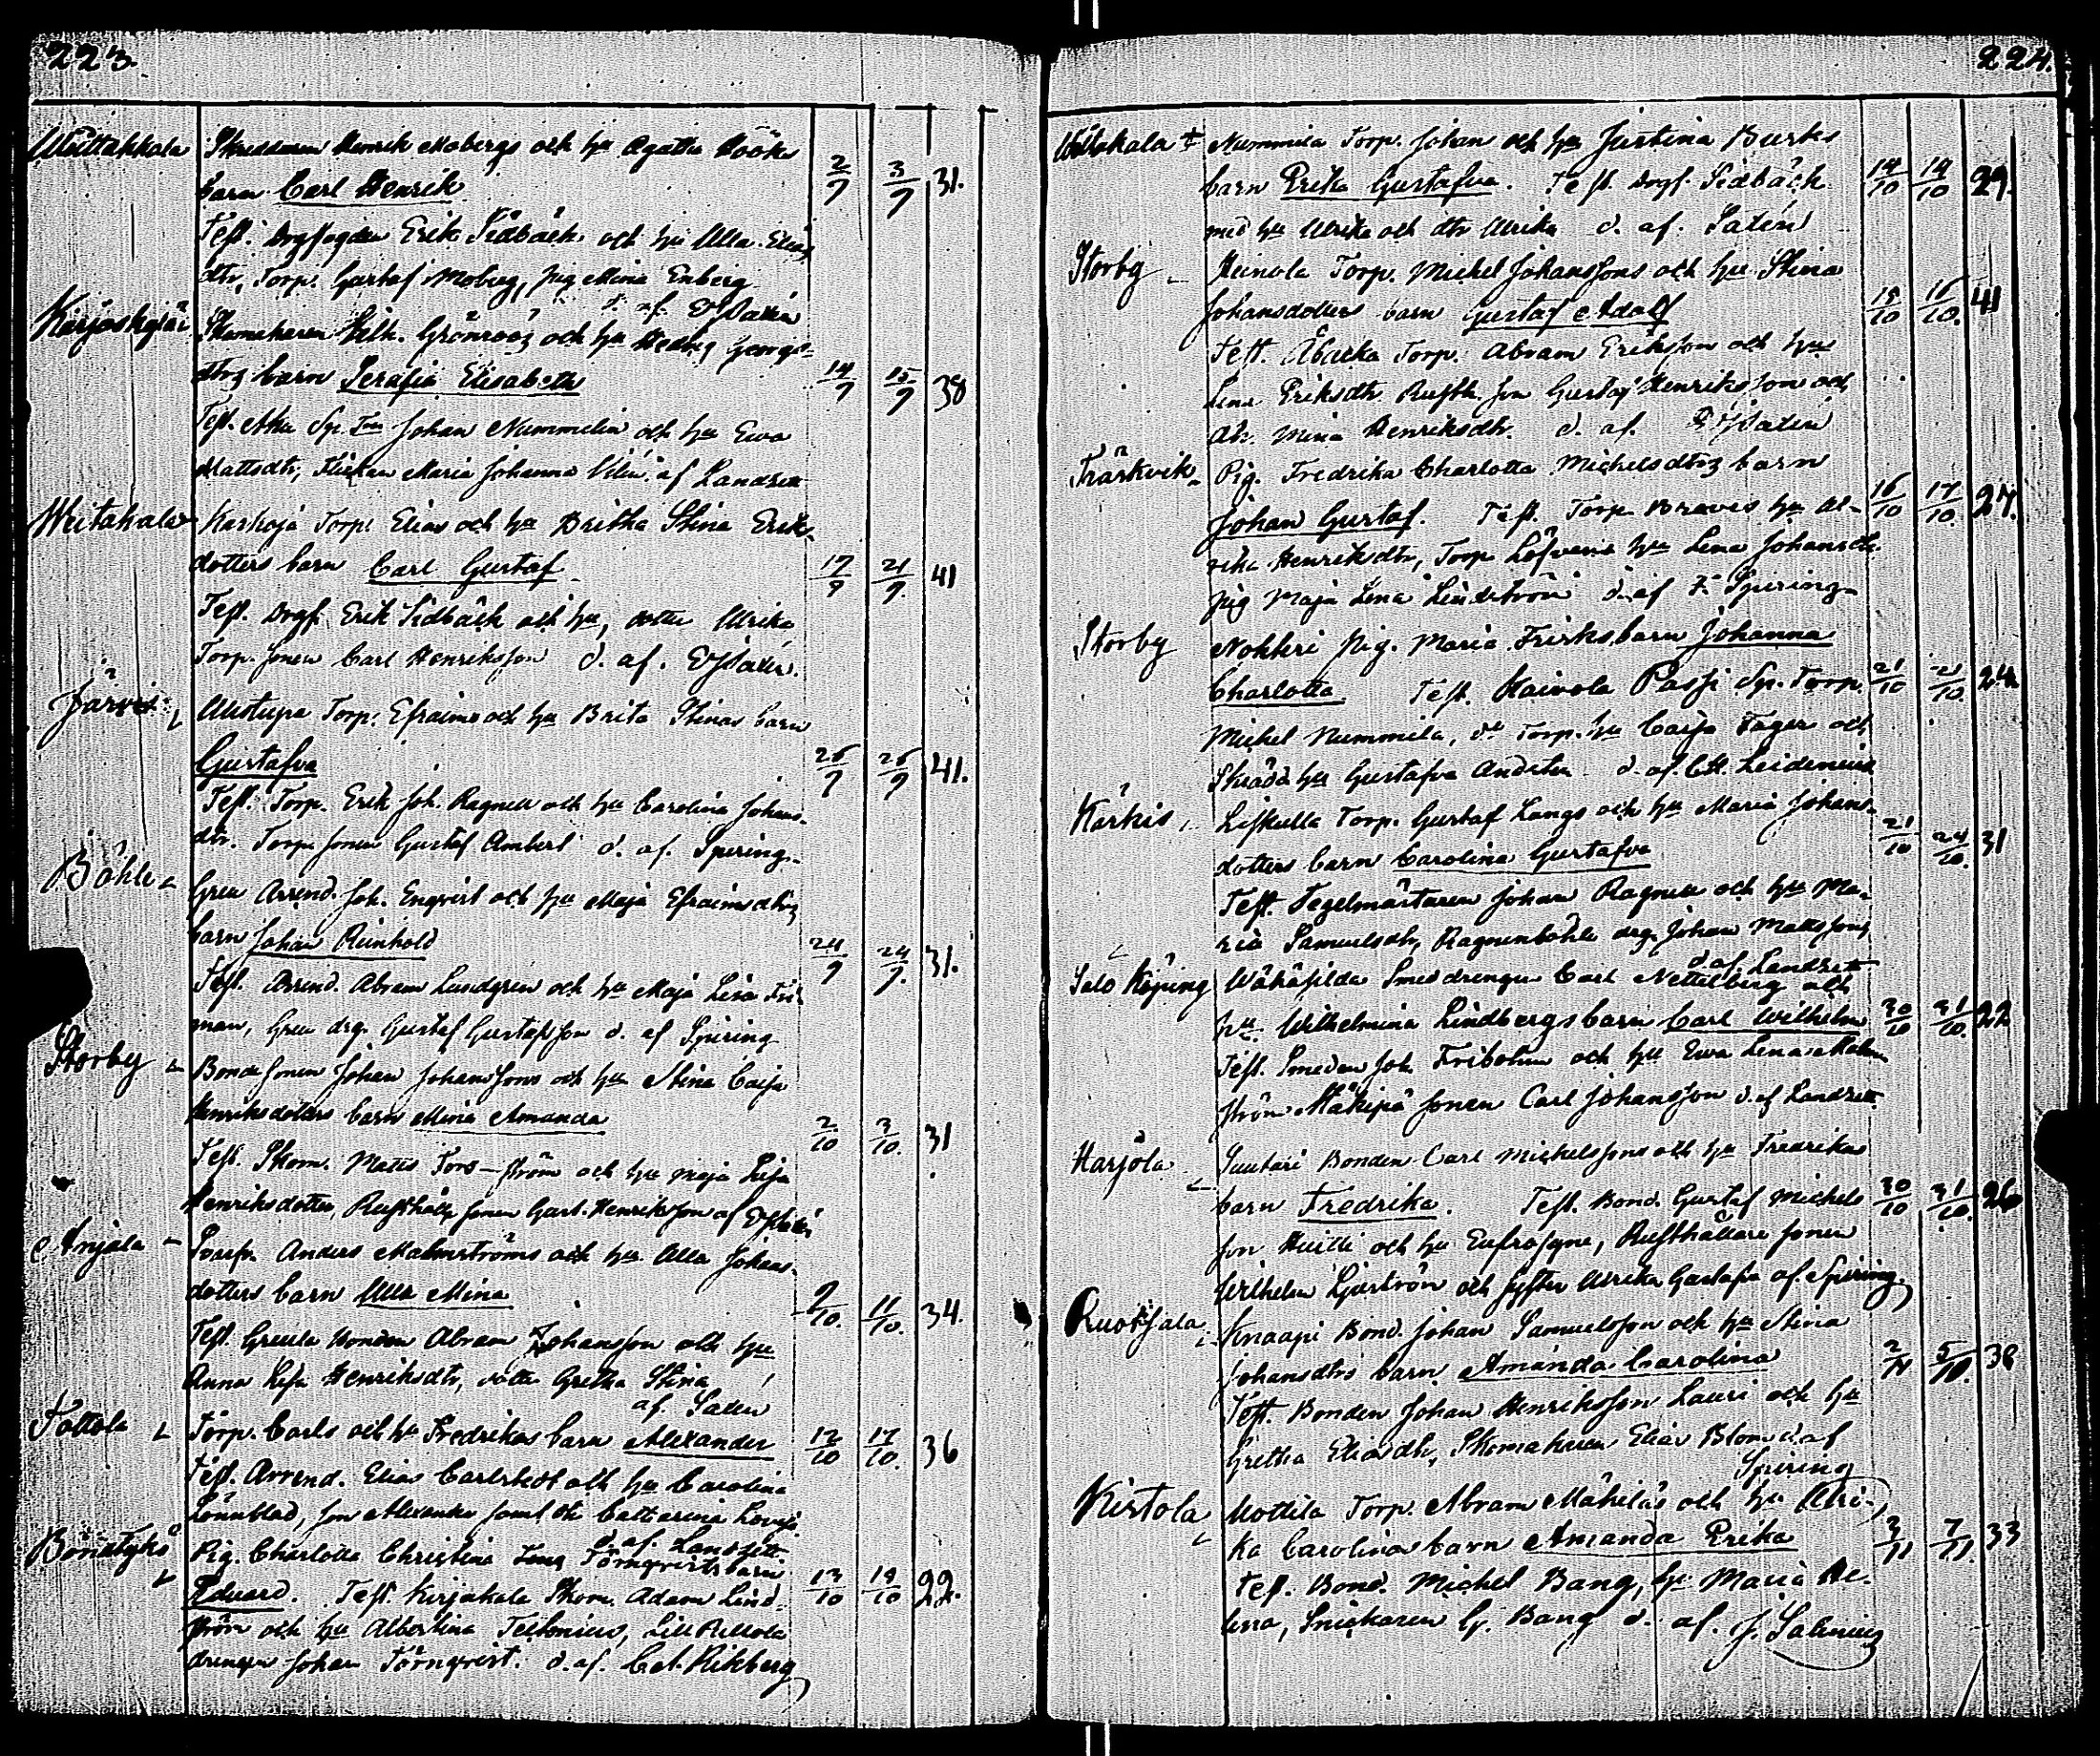 223.
Skreddaren Henrik Mobergs och hu Agatha Hööks
barn Carl Henrik 2/9 3/9 31.
Test. Drgfogden Erik Sidbäck och hu Ulla Elias
dtr, Torp. Gustaf Moberg, pig Mina Enberg
d. af.
Skomakaren Grönroos och hu Hedvig Georgs-
dtrs barn Serafia Elisabeth 14/9 15/9 38
Test. Johan Nummelin och hu Ewa
Mattsdtr, Flickan Maria Johanna af Landzett
Torp. Elias och hu Britha Stina Eriks-
dotters barn Carl Gustaf 17/9 21/9 41
Test. Drgf. Erik Sidbäck och hu, dotter Ulrika
Torp. sonen Carl Henriksson d. af.
Järvis Torp. Efraims och hu Brita Stinas barn
Gustafva 25/9 26/9 41.
Test. Torp. Erik Joh. Ragnell och hu Carolina Johans-
dtr. Torp. sonen Gustaf Ambert d. af. Spiring
Böhle Arrend. Joh. Enqvist och hu Maja Efraimsdtrs
barn Johan Reinhold 24/9 24/9 31.
Test. Arrend. Abram Lundgren och hu Maja Lisa
man, drg. Gustaf Gustafsson d. af Spiring
Storby Bonde sonen Johan Johanssons och hu Stina Caisa
Henriksdotters barn Mina Amanda 2/10 3/10 31
Test. Skom. Matts Fors-ström och hu Maja Lisa
Henriksdotter, Rusthålls sonen Gust. Henriksson af
Anjala Anders Malmströms och hu Ulla Johans-
dotters barn Ulla Mina 9/10 11/10 34.
Test. Bonden Abram Johansson och hu
Anna Lisa Henriksdtr, dotter Gretha Stina
af. Salen
Tottola Torp. Carls och hu Fredrikas barn Alexander 12/10 17/10 36
Test. Arrend. Elias Carlstedt och hu Carolina
Lönnblad, son Alexander samt dtr Catharina Lovisa
d. af. Landzett.
Pig. Charlotta Christina Törnqvists barn
Eduard. Test. Kirjakala Skom. Adam Lind- 13/10 19/10 22.
ström och hu Albertina Tellenius,
drengen Johan Törnqvist. d. af. Rikberg
224.
Nummila Torp. Johan och hu Justina Burks
barn Erika Gustafva. Test. Drgf. Sidbäck 14/10 19/10 29.
med hu Ulrika och dtr Ulrika d. af. Salén
Storby Heinola Torp. Michel Johanssons och hu Stina
Johansdotters barn Gustaf Adolf 15/10 16/10 41
Test. Torp. Abram Eriksson och hu
Lena Eriksdtr Rusth. son Gustaf Henriksson och
dtr. Mina Henriksdtr. d. af.
Pig. Fredrika Charlotta Michelsdtrs barn
Johan Gustaf. Test. Torp. hu Ul- 16/10 17/10 27.
rika Henriksdtr, Torp. hu Lena Johansdtr.
pig Maja Lena Lindström d. af Spiring
Storby Nohteri Pig. Maria Frisks barn Johanna
Charlotta. Test. Torp. 21/10 21/10 24
Michel Nummila, Torp. hu Caisa Fager och
hu Gustafva d. af.
Kärkis, Torp. Gustaf Langs och hu Maria Johans-
dotters barn Carolina Gustafva 21/10 24/10 31
Test. Tegelmästaren Johan Ragnell och hu Ma-
ria Samuelsdtr, Ragnenböhle drg. Johan Mattsson
d. af Landzett
Salo Köping Smeddrengen Carl Nettelberg och
hu Wilhelmina Lindbergs barn Carl Wilhelm 30/10 31/10 22
Test. Smeden Joh. Friholm och hu Ewa Lena Malm
ström Mäkipä sonen Carl Johansson d. af Landzett
Harjola Suutari Bonden Carl Michelssons och hu Fredrikas
barn Fredrika. Test. Bond. Gustaf Michels 30/10 31/10 26
son och hu Eufrosyne, Rusthållare sonen
Wilhelm och syster Ulrika Gustafva af Spiring
Ruotsala Knaapi Bond. Johan Samuelsson och hu Stina
Johansdtrs barn Amanda Carolina 2/11 5/11 38
Test. Bonden Johan Henriksson Lauri och hu
Gretha Eliasdtr, Skomakaren Elias Blom d. af
Spiring
Kirtola Mottila Torp. Abram Mäkiläs och hu Ulri-
ka Carolinas barn Amanda Erika 3/11 7/11 33
Test. Bond. Michel Bang, hu Maria He-
lena, Snickaren G. Bang d. af. J. Salenius